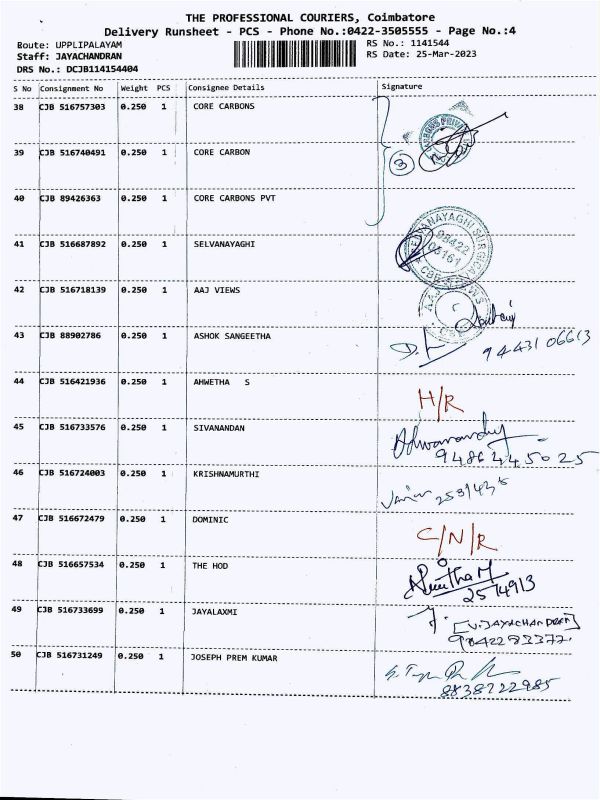 THE PROFESSIONAL COURIERS, Coimbatore
Delivery Runsheet - PCS - Phone No.:0422-3505555 - Page No.:4
Route: UPPLIPALAYAM
RS No.: 1141544
Staff: JAYACHANDRAN
RS Date: 25-Mar-2023
DRS No.: DCJB114154404
S No Consignment No Weight PCS Consignee Details Signature
38 CJB 516757303 0.250 1 CORE CARBONS
39 CJB 516740491 0.250 1 CORE CARBON 3
40 CJB 89426363 0.250 1 CORE CARBONS PVT
41 CJB 516687892 0.250 1 SELVANAYAGHI
98422
42 CJB 516718139 0.250 1 AAJ VIEWS
43 CJB 88902786 0.250 1 ASHOK SANGEETHA 9443106613
44 CJB 516421936 0.250 1 AHWETHA S H/R
45 CJB 516733576 0.250 1 SIVANANDAN
9486445025
46 CJB 516724003 0.250 1 KRISHNAMURTHI
47 CJB 516672479 0.250 1 DOMINIC C/N/R
48 CJB 516657534 0.250 1 THE HOD
2574913
49 CJB 516733699 0.250 1 JAYALAXMI J. [V.JAYACHANDRAN]
9842283377
50 CJB 516731249 0.250 1 JOSEPH PREM KUMAR
8838722985